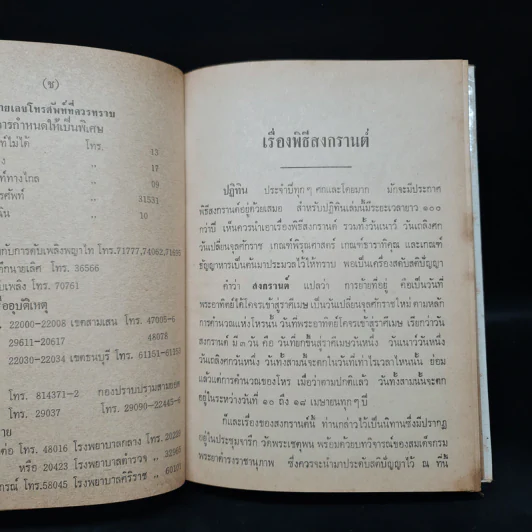 (ช)
ายเลขโทรศัพท์ที่ควรทราบ
การกำหนดให้เป็นพิเศษ
ท์ไม่ได้ โทร. 13
ง ,, 17
ท์ทางไกล ,, 09
รศัพท์ ,, 31531
นิน ,, 10
กับการดับเพลิงพญาไท โทร.71777,74062,
ตึกนายเลิศ โทร. 36566
ับเพลิง โทร. 70761
ื่ออุบัติเหตุ
. 22000-22008 เขตสามเสน โทร. 47005-6
29611-20617 48078
22030-22034 เขตธนบุรี โทร. 61151-
โทร. 814371-2 กองปราบปรามสามยอด
โทร. 29037 โทร. 29090-22445-
าย
ต่อ โทร. 48016 โรงพยาบาลกลาง โทร. 20220
หรือ 20423 โรงพยาบาลตำรวจ ,, 32969
กรณ์ โทร.58045 โรงพยาบาลศิริราช ,, 60107
เรื่องพิธีสงกรานต์
ปฏิทิน ประจำปีทุก ๆ ศกและโดยมาก มักจะมีประกาศ
พิธีสงกรานต์อยู่ด้วยเสมอ สำหรับปฏิทินเล่มนี้มีระยะเวลายาว ๑๐๐
กว่าปี เห็นควรนำเอาเรื่องพิธีสงกรานต์ รวมทั้งวันเนาว์ วันเถลิงศก
วันเปลี่ยนจุลศักราช เกณฑ์พิรุณศาสตร์ เกณฑ์ธาราธิคุณ และเกณฑ์
ธัญญาหารเป็นต้นมาประมวลไว้ให้ทราบ พอเป็นเครื่องสดับสติปัญญา
คำว่า สงกรานต์ แปลว่า การย้ายที่อยู่ คือเป็นวันที่
พระอาทิตย์ได้โคจรเข้าสู่ราศีเมษ เป็นวันเปลี่ยนจุลศักราชใหม่ ตามหลัก
การคำนวณแห่งโหรนั้น วันที่พระอาทิตย์โคจรเข้าสู่ราศีเมษ เรียกว่าวัน
สงกรานต์ มี ๓ วัน คือ วันที่ยกขึ้นสู่ราศีเมษวันหนึ่ง วันเนาว์วันหนึ่ง
วันเถลิงศกวันหนึ่ง วันทั้งสามนี้จะตกในวันที่เท่าไรเวลาไหนนั้น ย่อม
แล้วแต่การคำนวณของโหร เมื่อว่าตามปกติแล้ว วันทั้งสามนั้นจะตก
อยู่ในระหว่างวันที่ ๑๐ ถึง ๑๘ เมษายนทุก ๆ ปี
ก็และเรื่องของสงกรานต์นี้ ท่านกล่าวไว้เป็นนิทานซึ่งมีปรากฏ
อยู่ในประชุมจารึก วัดพระเชตุพน พร้อมด้วยบทวิจารณ์ของสมเด็จกรม
พระยาดำรงราชานุภาพ ซึ่งควรจะนำมาประดับสติปัญญาไว้ ณ ที่นี้